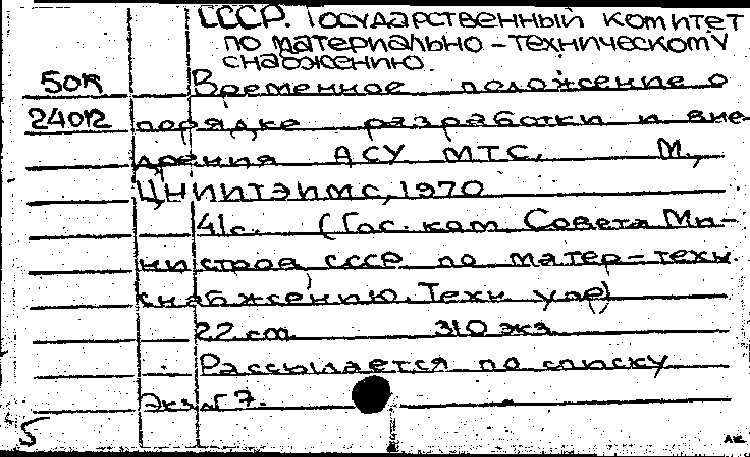 СССР. Государственный комитет
по материально-техническому
снабжению.
50к Временное положение о
240к порядке разработки и вне-
дрения АСУ МТС. М.,
ЦНИИТЭИМС, 1970
41с. (Гос. ком. Совета Ми-
нистров СССР по матер-техн.
снабжению. Техн. упр)
22 cm 310 экз.
Рассылается по списку
Экз. № 7.
5